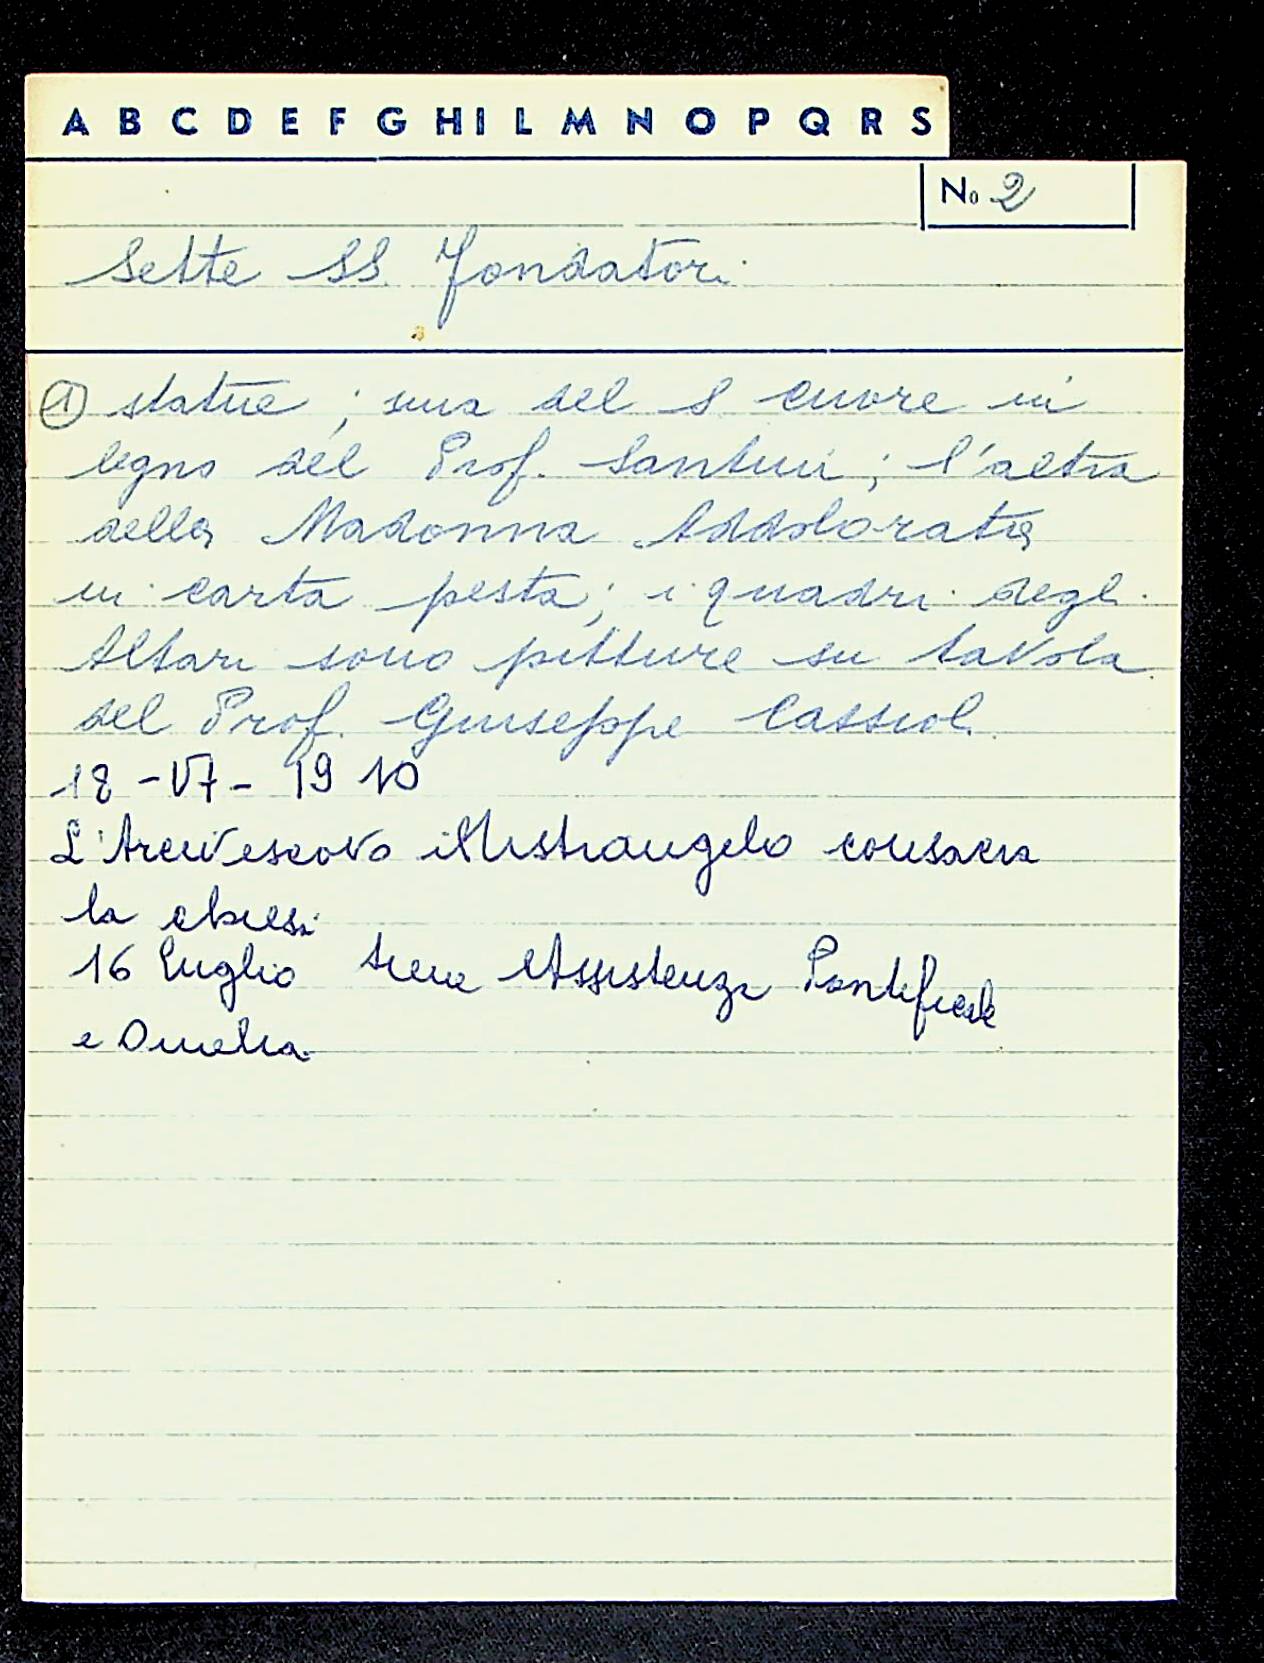 A B C D E F G H I L M N O P Q R S
No 2
Sette SS. Fondatori
① statue ; una del S cuore in
legno del Prof. Santini ; l'altra
della Madonna Addolorata
in carta pesta ; i quadri degli
Altari sono pitture su tavola
del Prof. Giuseppe Cassioli
18 - VI - 1910
L'Arcivescovo Mistrangelo consacra
la chiesa
16 Luglio tiene Assistenza Pontificale
e Omelia